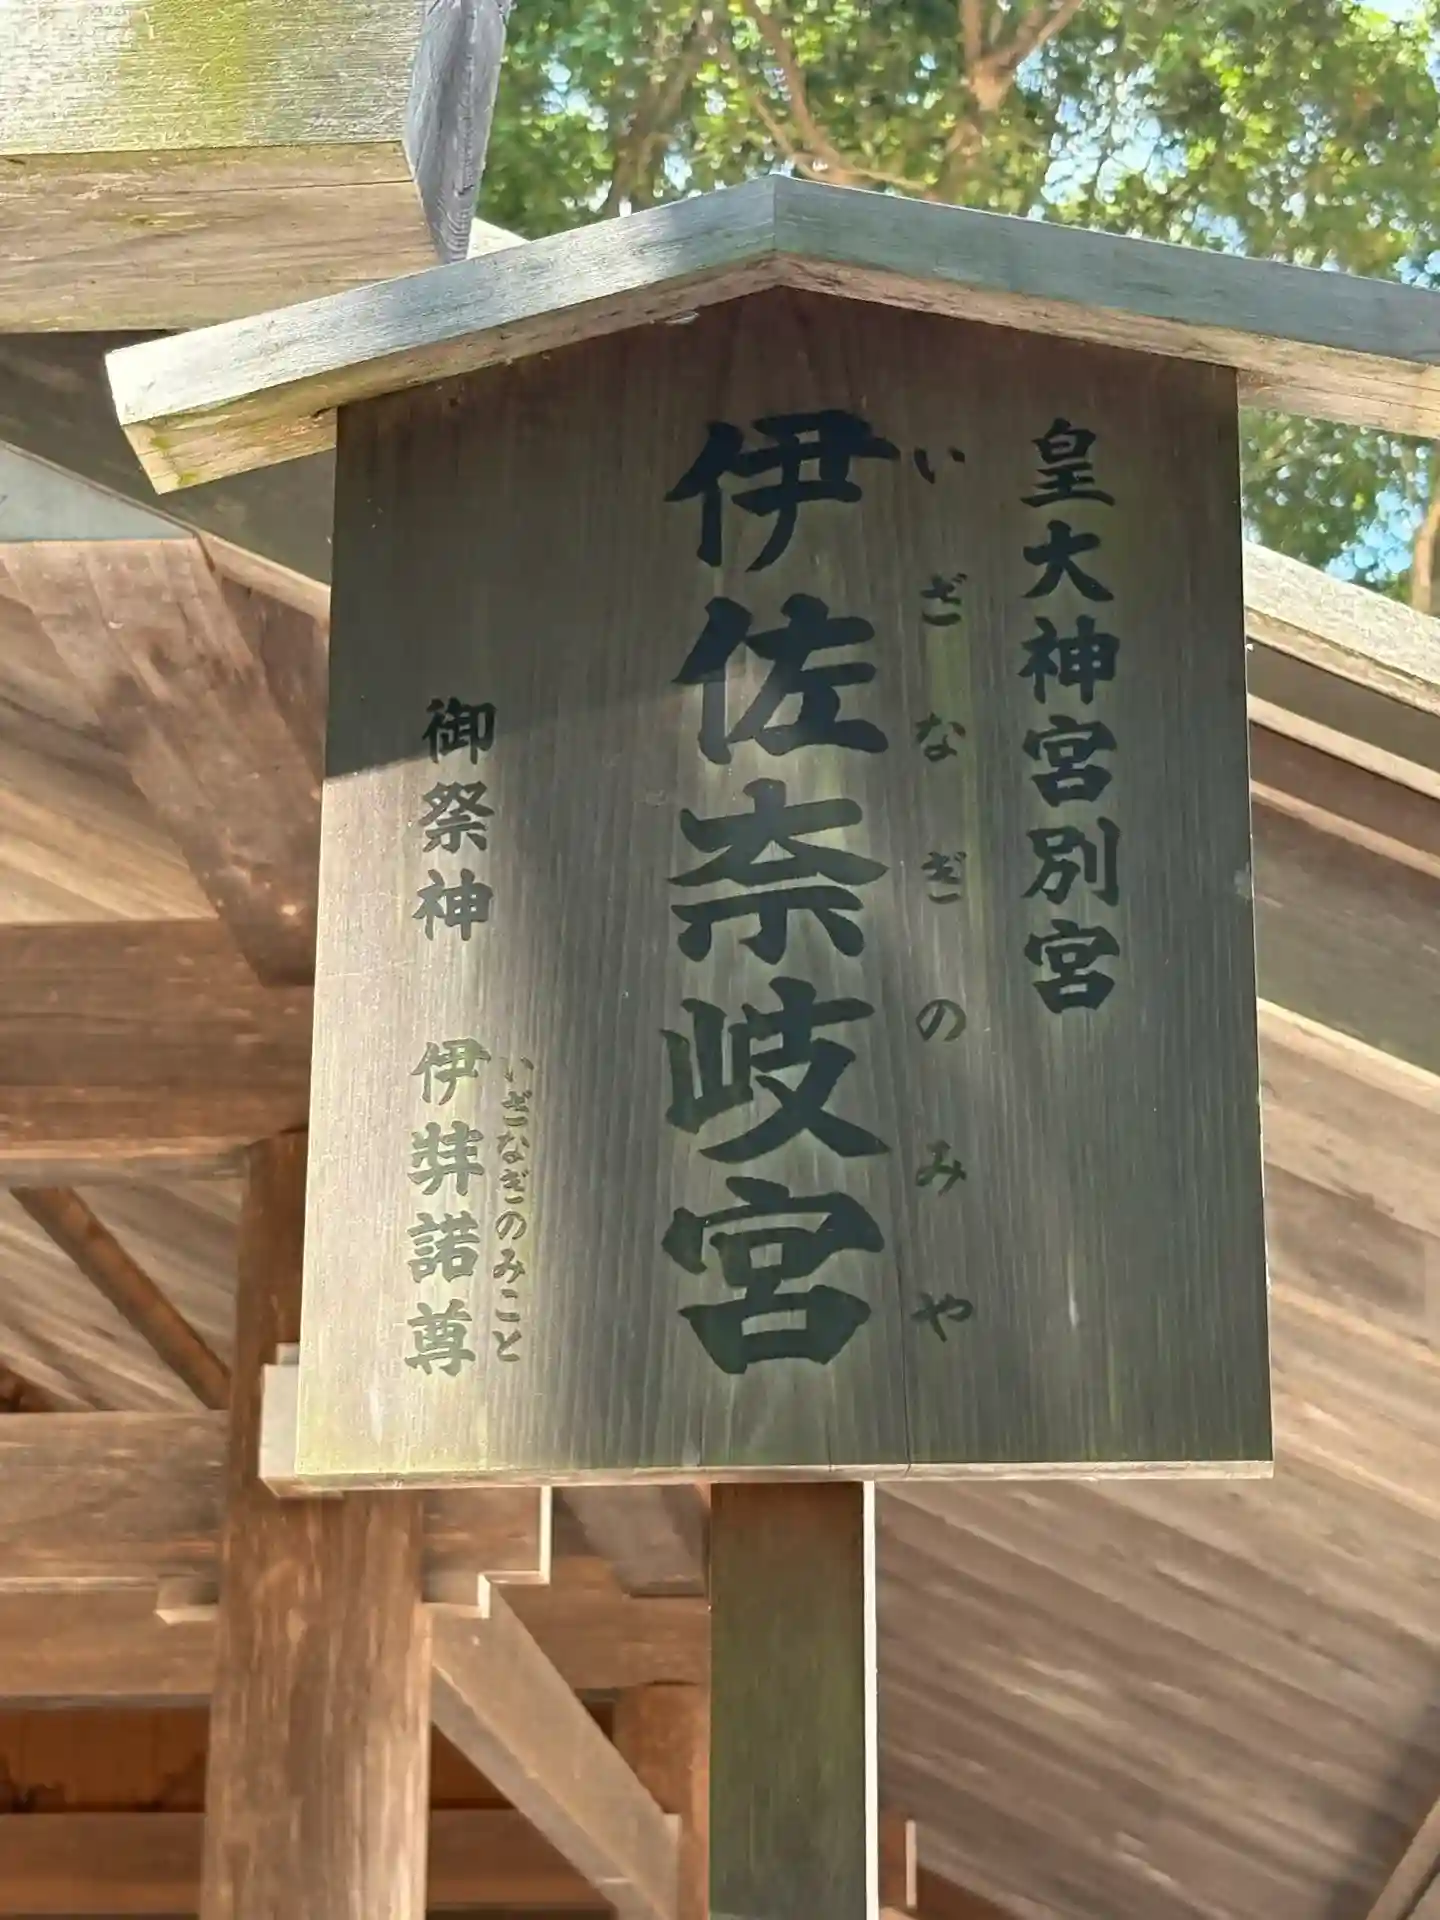 皇大神宮別宮
いざなぎのみや
伊佐奈岐宮
いざなぎのみこと
御祭神 伊弉諾尊